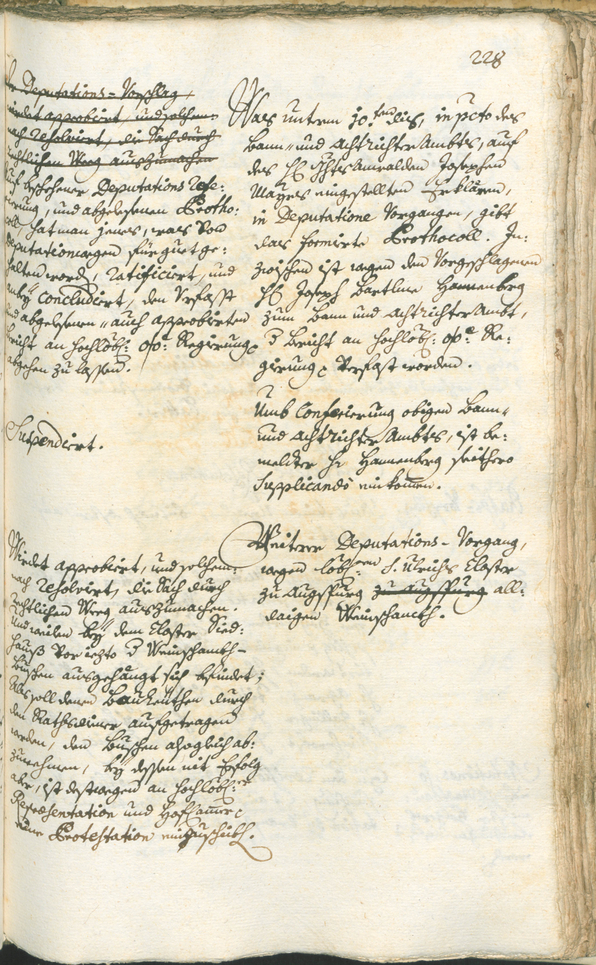 228
Deputations-Vorschlag,
wirdet approbirt, und solchem-
nach resolvirt, die Sach durch
rechtlichen Weeg auszumachen
Auf beschehene Deputations Refe-
rierung, und abgelesenen Protho-
coll, hat man jenes, was von
Deputationwegen fürguet ge-
halten word, ratificiert, und
anbey concludirt, den verfasst
und abgelesenen, auch approbirten
bericht an hochlöb: o:ö: Regierung
abgehen zu lassen.
Suspendiert.
Wirdet approbiert, und solchem-
nach resolviert, die Sach durch
rechtlichen Weeg auszumachen.
Und weilen bey dem Closter Sied-
hauß vor iezto 3 Weinschankh-
buschen ausgehängt sich befindet;
Als soll denen Bauleuthen durch
den Rathsdiener aufgetragen
werden, den buschen alsogleich ab-
zunehmen, bey dessen nit Erfolg
aber, ist destwegen an hochlöb:
Repræsentation und Hofkammer
eine Protestation einzuschickh.
Was untern 10.ten dis, in pcto des
Bann- und Achtrichter Ambts, auf
des H: Josephen
Mayrs eingestellten Erklären,
in Deputatione vorgangen, gibt
das formirte Prothocoll. In-
zwischen ist wegen den vorgeschlagenen
H: Joseph Bartlme Hannenberg
zum Bann und Achtrichter Ambt,
3 bericht an hochlöb: o:ö: Re-
gierung verfast worden.
Umb Conferierung obigen Bann-
und Achtrichter Ambts, ist be-
melter H: Hannenberg seithero
supplicando einkommen.
Weiterer Deputations-Vorgang,
wegen löb:en S: Ulrichs Closter
zu Augspurg zu Augspurg all-
daigen Weinschanckh.